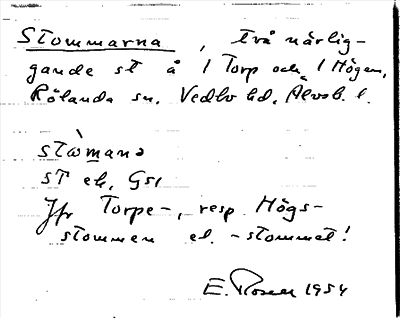 Stommarna, två närlig-
gande st å 1 Torp och 1 Högen,
Rölanda sn. Vedbo hd. Älvsb. l.
ståmana
st ek, Gs1
Jfr Torpe-, resp Högs-
stommen el. -stommet!
E. Rosen 1954